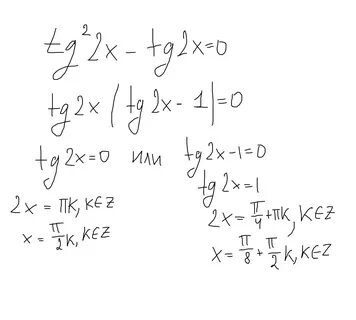 tg²2x - tg2x=0
tg2x(tg2x-1)=0
tg2x=0 или tg2x-1=0
tg2x=1
2x=πk, k∈Z
x=π/2 k, k∈Z
2x=π/4+πk, k∈Z
x=π/8+π/2 k, k∈Z